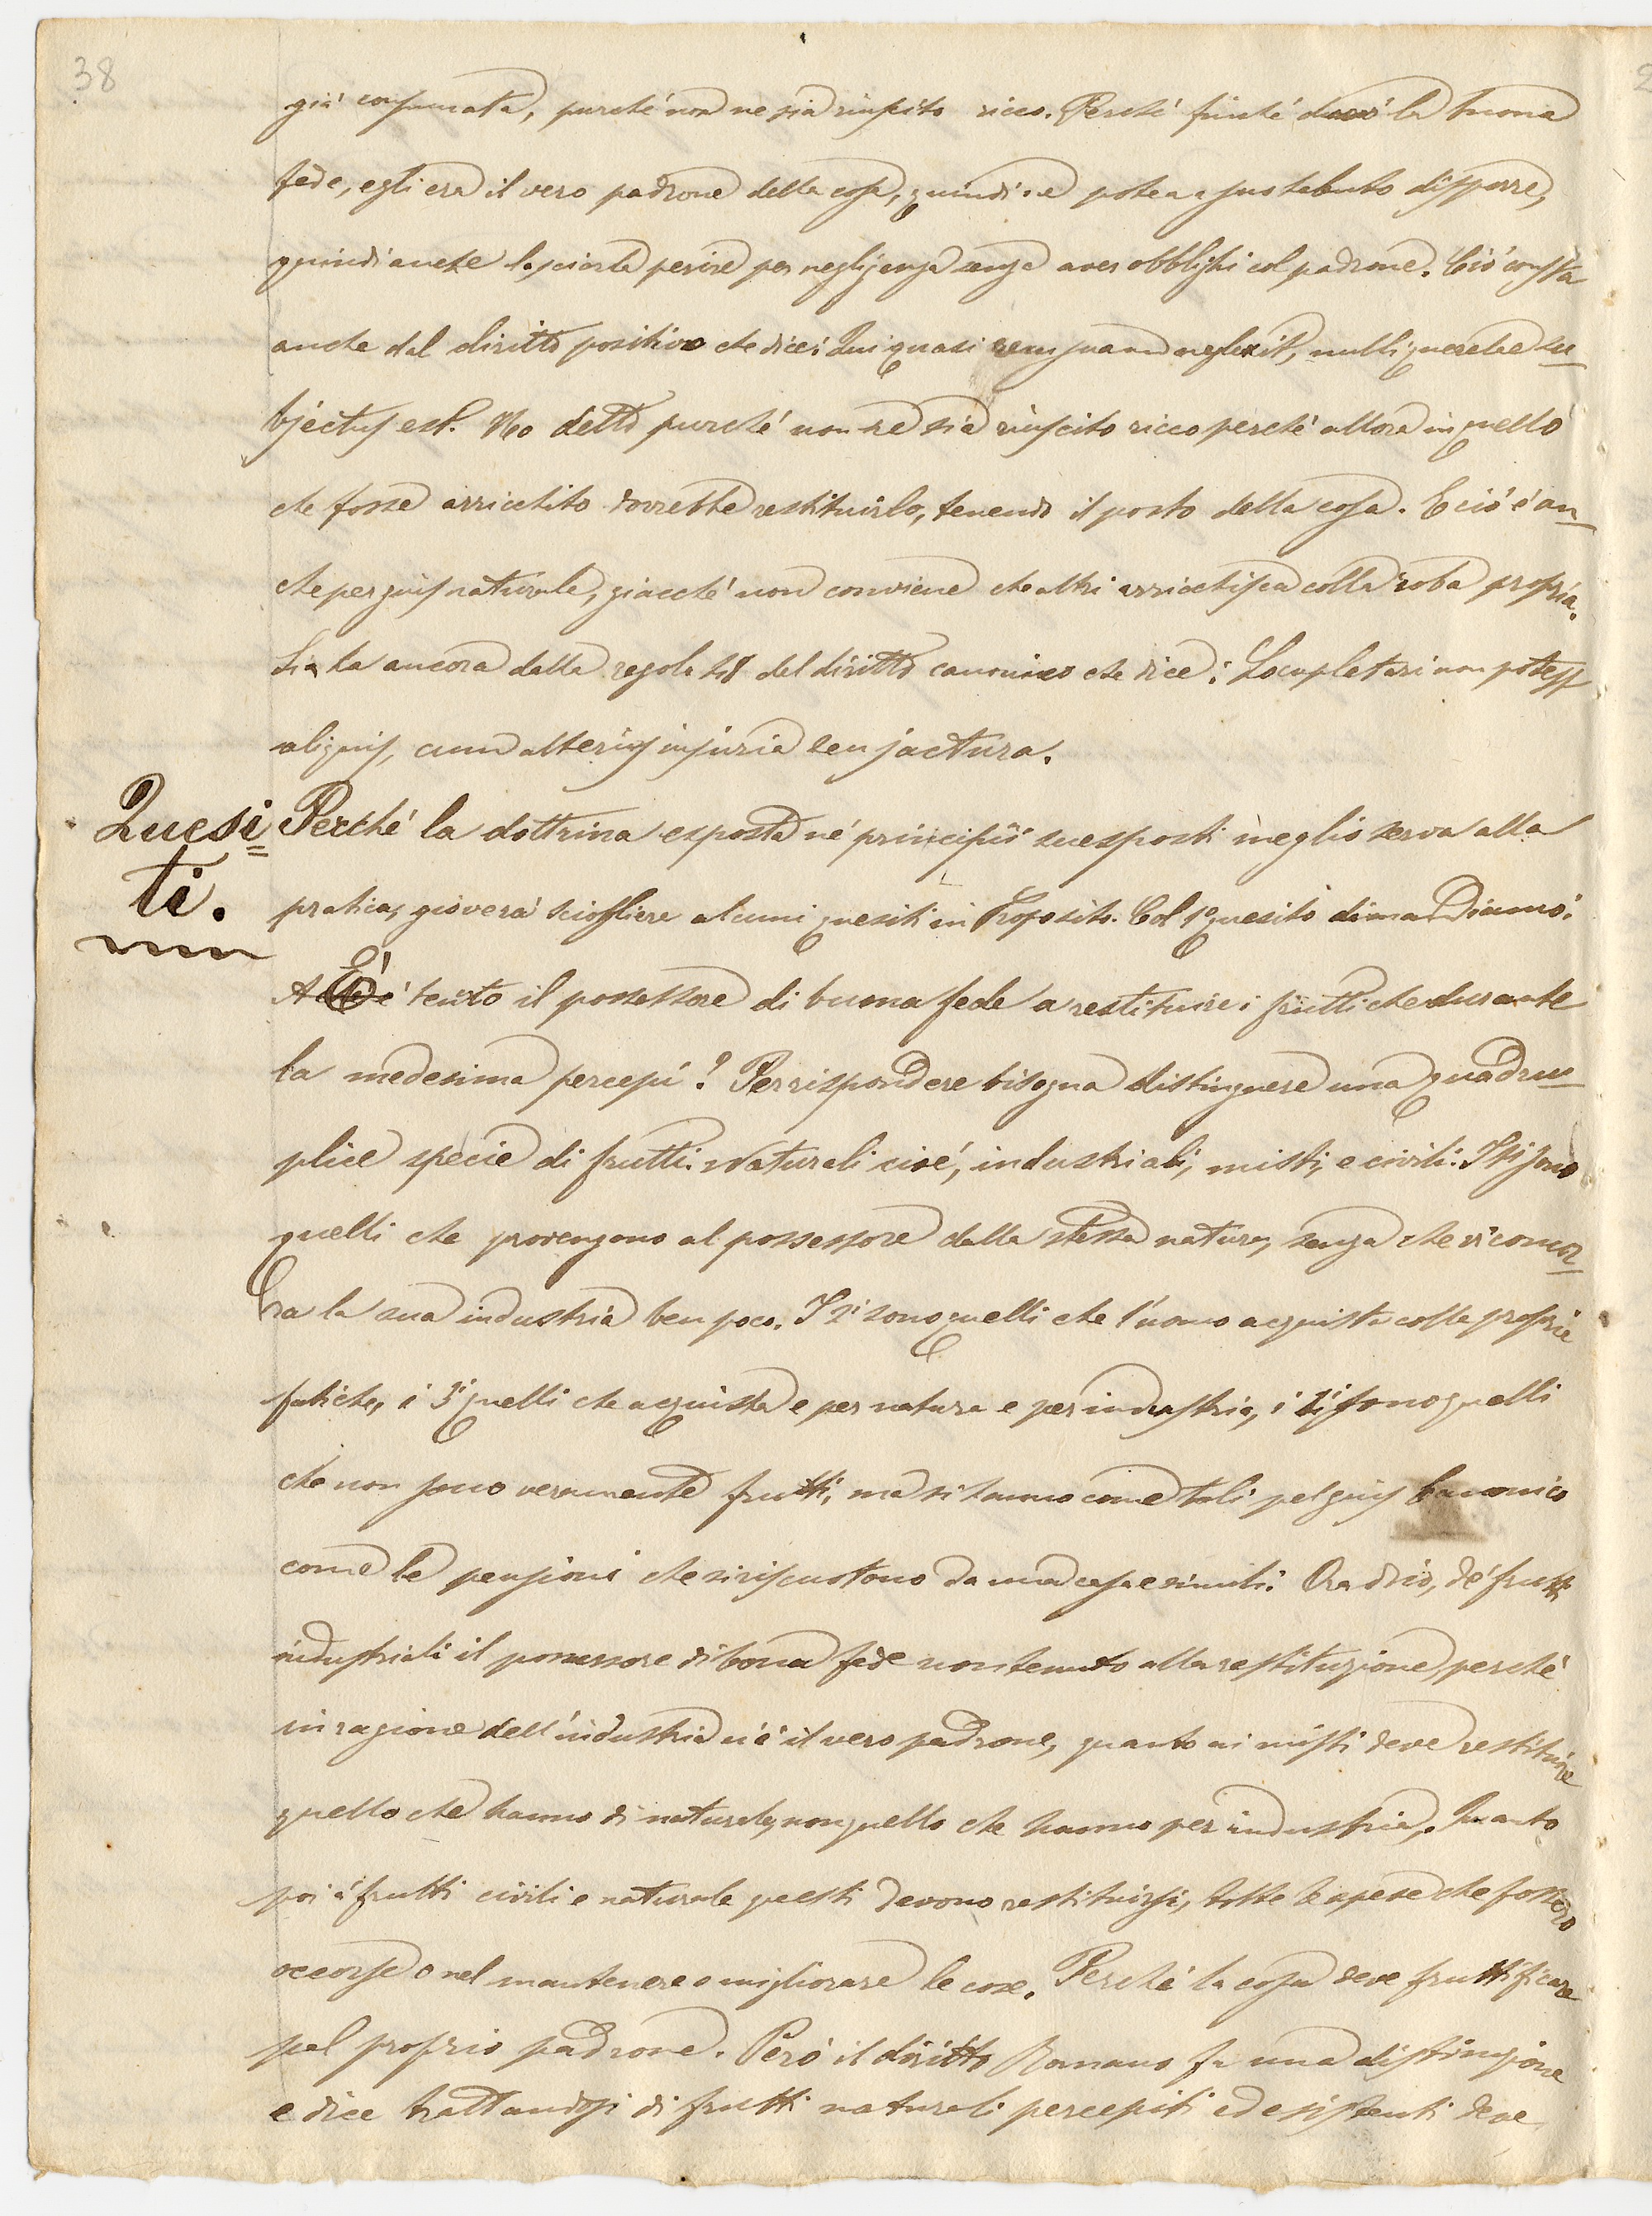 38
già consumata, purché non ne sia riuscito ricco. Perché finché durò la buona
fede, egli era il vero padrone della cosa, quindi ne potea a suo talento disporre,
quindi anche lasciarla perire per negligenza senza aver obblighi col padrone. Ciò consta
anche dal diritto positivo che dice: Qui quasi rem suam neglexit, nulli querelae su-
bjectus est. Ho detto purché non ne sia riuscito ricco perché allora in quello
che fosse arricchito dovrebbe restituirlo, tenendo il posto della cosa. E ciò é an-
che per gius naturale, giacché non conviene che altri arricchisca colla roba propria.
Si ha ancora dalla regola 48 del diritto canonico che dice: Locupletari non potest
aliquis, cum alterius injuria seu jactura.
Quesi=
ti.
Perché la dottrina esposta né principii suesposti meglio serva alla
pratica, gioverà sciogliere alcuni quesiti in proposito. Col 1º quesito dimandiamo:
É tenuto il possessore di buona fede a restituire i frutti che durante
la medesima percepí? Per rispondere bisogna distinguere una quadru-
plice specie di frutti. Naturali cioé, industriali, misti, e civili. I 1i sono
quelli che provengono al possessore dalla stessa natura, senza che vi concor-
ra la sua industria ben poco. I 2i sono quelli che l'uomo acquista colle proprie
fatiche, i 3i quelli che acquista e per natura e per industria, i 4i sono quelli
che non sono veramente frutti, ma si hanno come tali pel gius Canonico
come le pensioni che si riscuotono da una casa e simili. Ora dico, de' frutti
industriali il possessore di bona fede non tenuto alla restituzione, perché
in ragione dell'industria n'é il vero padrone, quanto ai misti deve restituire
quello che hanno di naturale, non quello che hanno per industria. Quanto
poi a' frutti civili e naturale questi devono restituirsi, tolte le spese che fossero
occorse o nel mantenere o migliorare le cose. Perché la cosa deve fruttificare
pel proprio padrone. Però il diritto Romano fa una distinzione
e dice trattandosi di frutti naturali percepiti ed esistenti deve